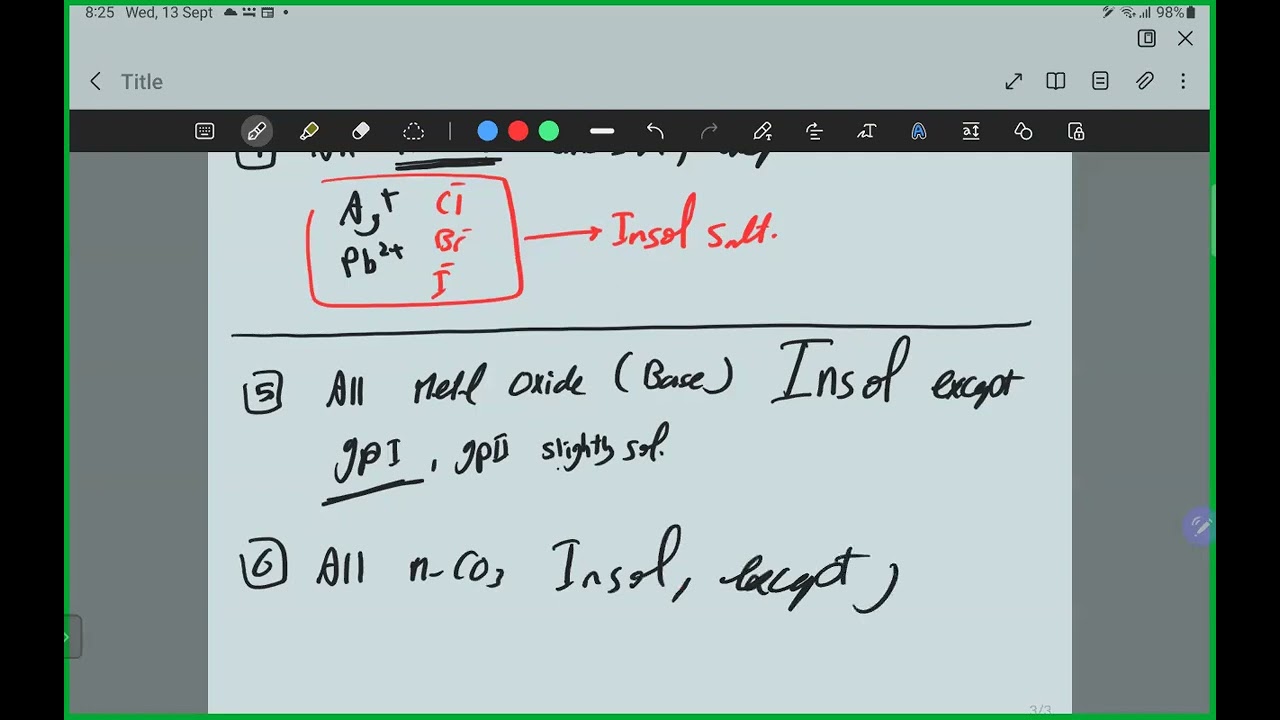 8:25 Wed, 13 Sept 98%
Title
Ag+ Cl-
→ Insol salt.
Br-
Pb2+
I-
5 All Metl Oxide (Base) Insol except
gp I, gp II slightly sol.
6 All n-CO3 Insol, except,
3/3